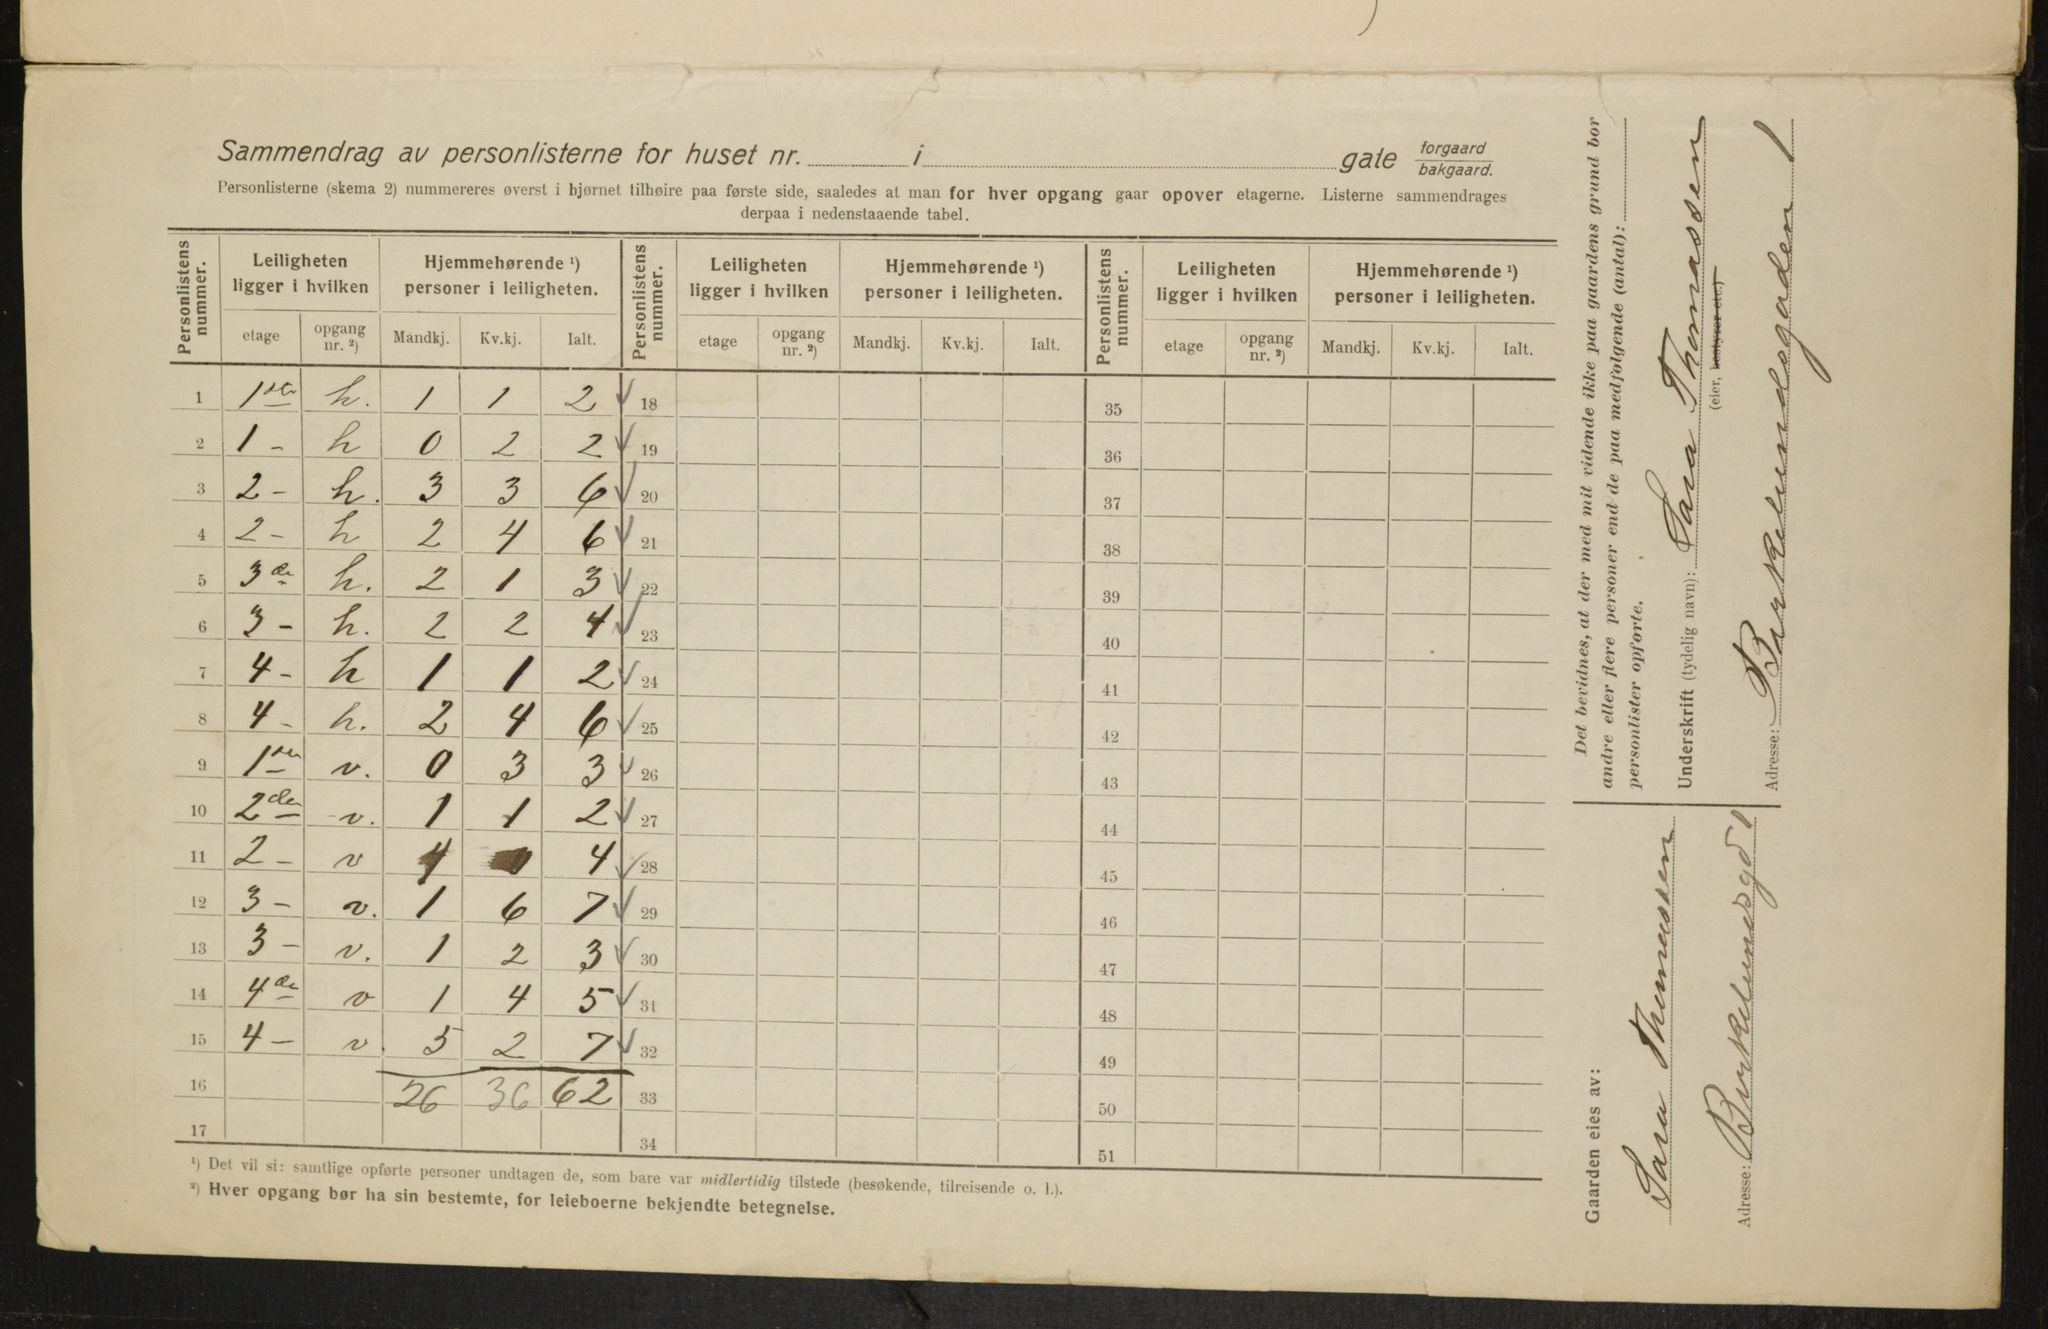 Sammendrag av personlisterne for huset nr. i gate forgaard/bakgaard.
Personlisterne (skema 2) nummereres øverst i hjørnet tilhøire paa første side, saaledes at man for hver opgang gaar opover etagerne. Listerne sammendrages
derpaa i nedenstaaende tabel.
Personlistens nummer. Leiligheten ligger i hvilken Hjemmehørende ¹) personer i leiligheten. Personlistens nummer. Leiligheten ligger i hvilken Hjemmehørende ¹) personer i leiligheten. Personlistens nummer. Leiligheten ligger i hvilken Hjemmehørende ¹) personer i leiligheten.
etage opgang nr. ²) Mandkj. Kv.kj. Ialt. etage opgang nr. ²) Mandkj. Kv.kj. Ialt. etage opgang nr. ²) Mandkj. Kv.kj. Ialt.
1 1ste h. 1 1 2 18 35
2 1 - h 0 2 2 19 36
3 2 - h. 3 3 6 20 37
4 2 - h 2 4 6 21 38
5 3de h. 2 1 3 22 39
6 3 - h. 2 2 4 23 40
7 4 - h 1 1 2 24 41
8 4 - h. 2 4 6 25 42
9 1ste v. 0 3 3 26 43
10 2den v. 1 1 2 27 44
11 2 - v 4 0 4 28 45
12 3 - v. 1 6 7 29 46
13 3 - v. 1 2 3 30 47
14 4de v 1 4 5 31 48
15 4 - v. 5 2 7 32 49
16 26 36 62 33 50
17 34 51
¹) Det vil si: samtlige opførte personer undtagen de, som bare var midlertidig tilstede (besøkende, tilreisende o. l.).
²) Hver opgang bør ha sin bestemte, for leieboerne bekjendte betegnelse.
Det bevidnes, at der med mit vidende ikke paa gaardens grund bor
andre eller flere personer end de paa medfølgende (antal):
personlister opførte.
Underskrift (tydelig navn): Sara Thomassen
(eier, bestyrer etc.)
Adresse: Birkelundsgaden 1
Gaarden eies av:
Sara Thomassen
Adresse: Birkelundsgd 1